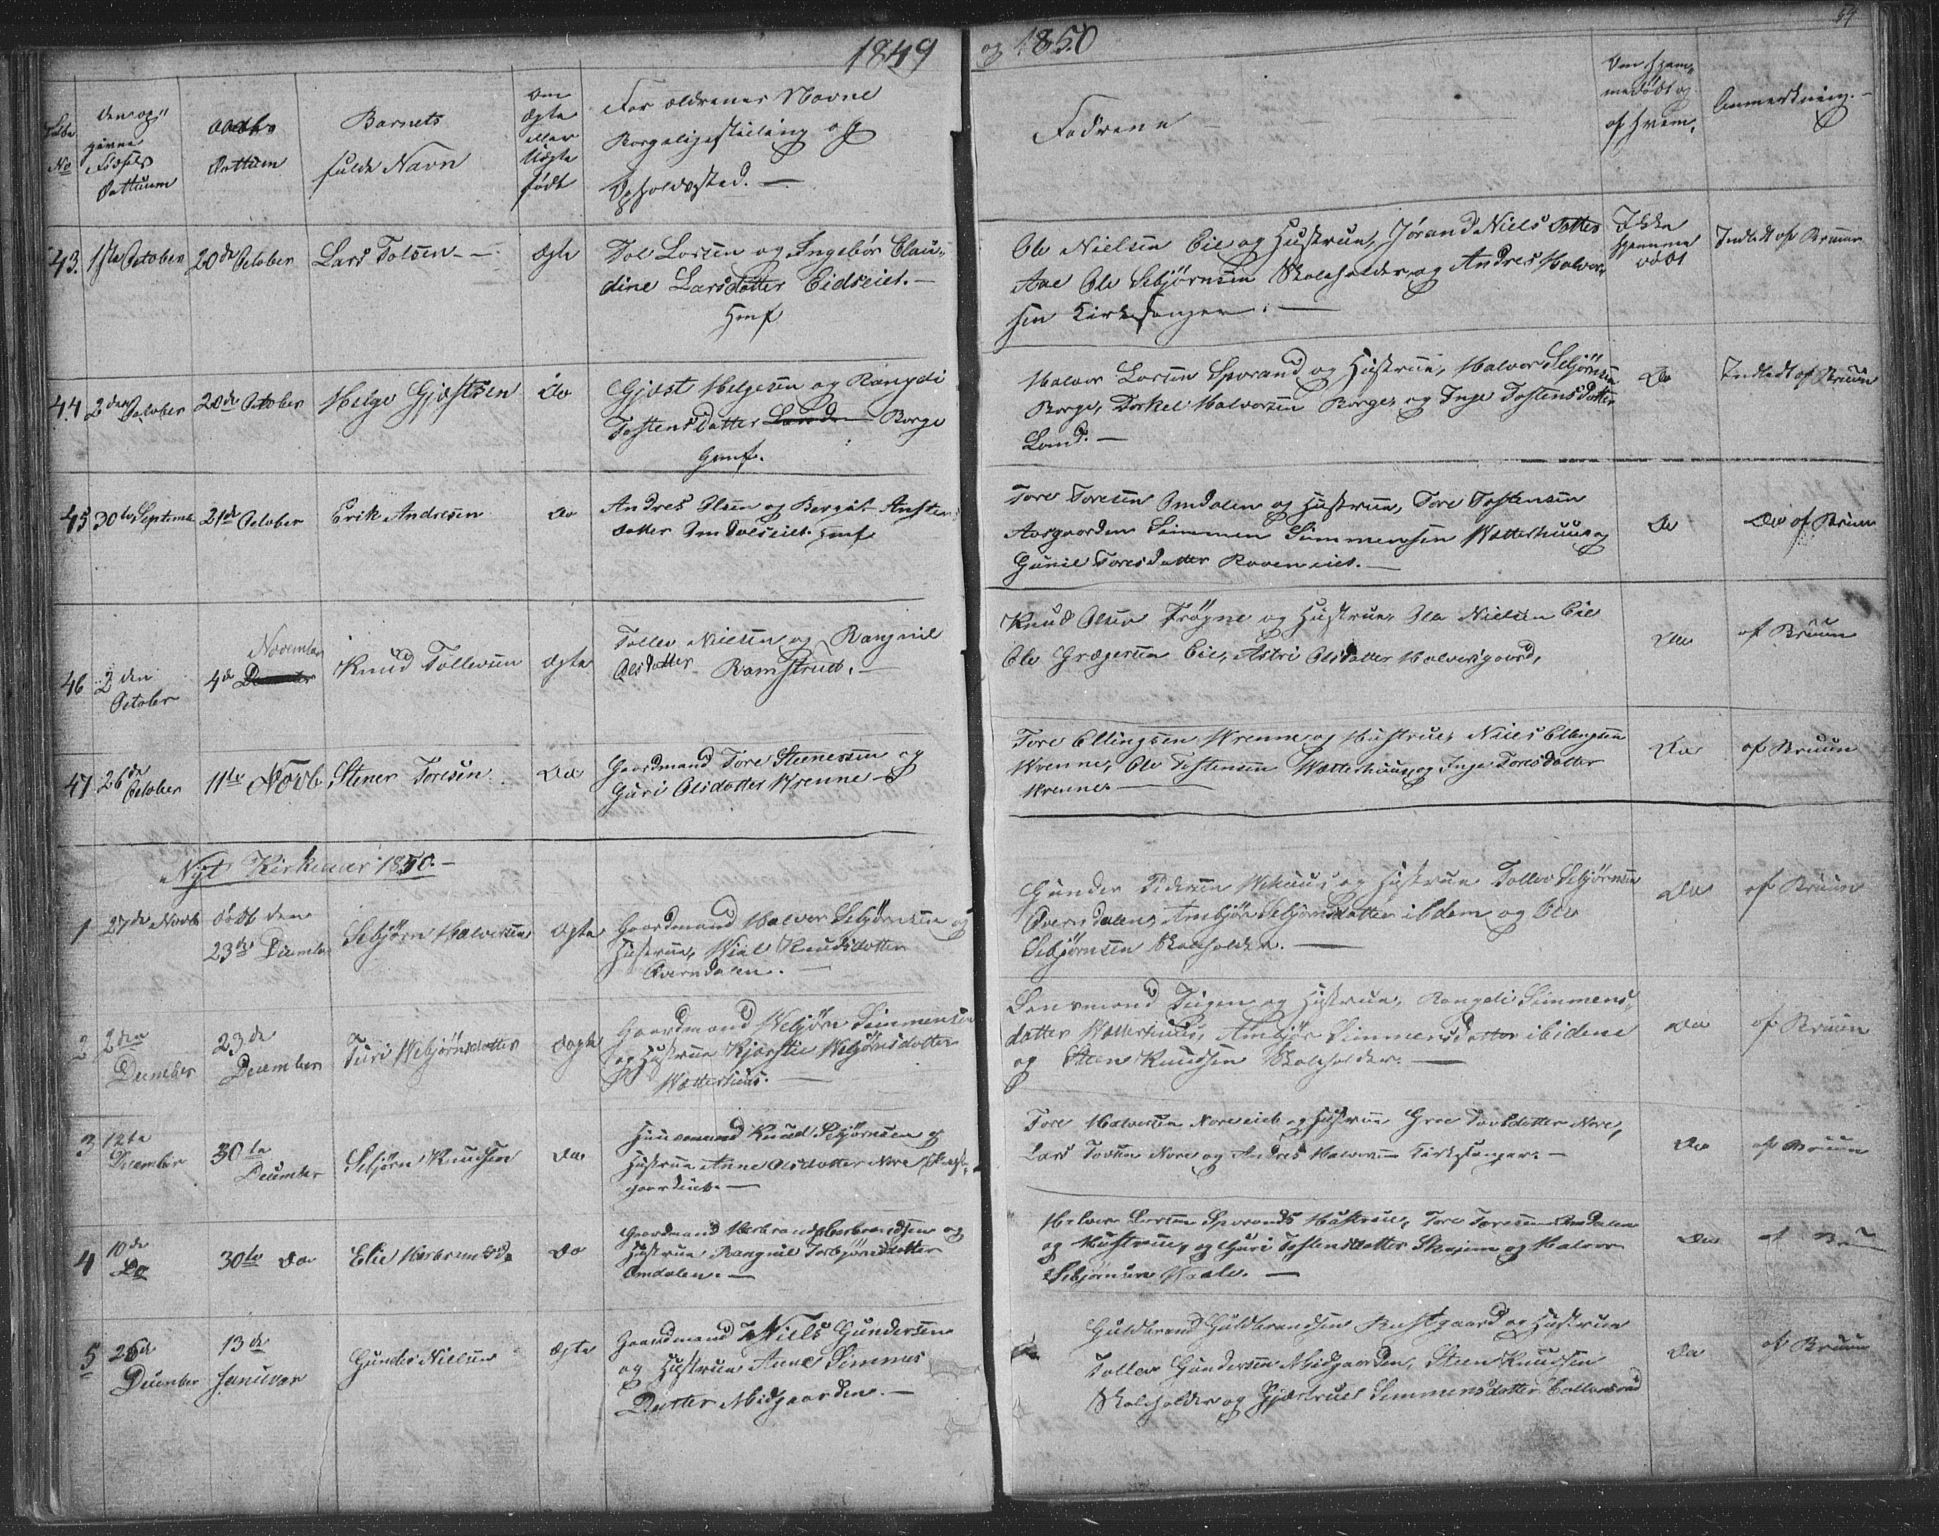 1849 og 1850
54
No
den op
givne
Fødsels
Dattum
Daabs
Dattum
Barnets
fulde Navn
Om
Ægte
eller
Uægte
født
Forældrenes Navne
Borgelige Stilling og
Opholdssted. —
Faddrene
Om Hjem
medøbt og
af hvem.
Anmerkning. —
43. 1ste October
20de October
Lars Tolsen
Ægte
Larsen og Ingebor Clau
dine Larsdatter Eidseiet. —
Huusf
Ole Nielsen Eie og Hustrue, Jørand Niels Datter
Aae Ole Sebjørnsen Skoleholder og Andres Halvor
sen Kirkesanger. —
Ikke
hjemme
døbt
Indledt af Bruun
44 2den October
28de October
Helge Gjestsen
Do
Gjest Helgesen og Rangdi
Tostensdatter Borge
Gmf.
Halvor Larsen Sporand og Hustrue, Halvor Sebjørnsen
Borge, Torkel Halvorsen Borge, og Inge Tostensdatter
Land. —
Do
Indledt af Bruun
45 30te Septemb
21de October
Erik Andresen
Do
Andres Olsen og Bergit
datter Omdalseiet. Huusf
Tore Toresen Omdalen og Hustrue, Tore Tostensen
Aasgaarden Simmen Simmensen Watterhuus og
Gunil Toresdatter
Do
Do af Bruun
46 2den
October
November
4de
Knud Tollevsen
Ægte
Tollev Nielsen og Rangnil
Olsdatter Ramstrud. —
Knud Olsen Frøgne og Hustrue, Ole Nielsen Eie
Ole Grægersen Eie, Astri Olsdatter Halvorsgaard,
Do
af Bruun
47 26de
October
11te Novb
Stener Toresen
Do
Gaardmand Tore Stenersen og
Guri Olsdatter Wrenne —
Tore Ellingsen Wrenne og Hustrue, Niels Ellingsen
Wrenne, Ole Tostensen Watterhuus, og Inge Toresdatter
Wrenne. —
Do
af Bruun
Nyt Kirkeaar 1850. —
1 27de Novb
døbt den
23de December
Sebjørn Halvorsen
Ægte
Gaardmand Halvor Sebjørnsen og
Hustrue, Knudsdatter
Øverndalen. —
Gunder Pedersen og Hustrue Tollev Sebjørnsen
Øverndalen, Ambjør Sebjørnsdatter ibidem og Ole
Sebjørnsen Skoleholder. —
Do
af Bruun
2 2den
December
23de
December
Turi Webjørnsdatter
Ægte
Gaardmand Webjørn Simmensen
og Hustrue Kjerstie Webjørnsdatter
Watterhuus. —
Lensmand Teigen og Hustrue, Rangdi Simmens
datter Watterhuus, Ambjør Simmensdatter ibidem
og Steen Knudsen Skoleholder. —
Do
af Bruun
3 12te
December
30te
December
Sebjørn Knudsen
Do
Huusmand Knud Sebjørnsen og
Hustrue Anne Olsdatter Nore
gaardeiet. —
Tore Halvorsen Noreeiet og Hustrue Groe datter Nore,
Lars Nore og Andres Halvorsen Kirkesanger. —
Do
af Bruun
4 10de
Do
30te Do
Elie Herbrandsd
Do
Gaardmand Herbrand Herbrandsen og
Hustrue Rangnil Torbjørnsdatter
Omdalen. —
Halvor Larsen Sporands Hustrue, Tore Toresen Omdalen
og Hustrue, og Guri Tostensdatter Skajem og Halvor
Sebjørnsen —
Do
af Bruun
5 26de
December
13de
Januar
Gunder Nielsen
Ægte
Gaardmand Niels Gundersen
og Hustrue Anne Simmens
Datter Midgaarden. —
Guldbrand Guldbrandsen og Hustrue
Tollev Gundersen Midgaarden, Steen Knudsen
Skoleholder og Gjertrud Simmensdatter
Do
af Bruun